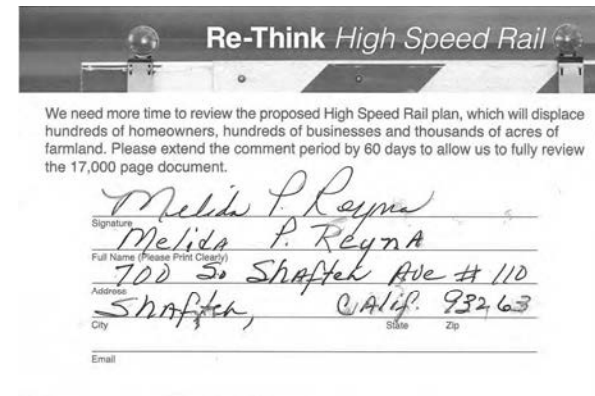 Re-Think High Speed Rail
We need more time to review the proposed High Speed Rail plan, which will displace
hundreds of homeowners, hundreds of businesses and thousands of acres of
farmland. Please extend the comment period by 60 days to allow us to fully review
the 17,000 page document.
Melida P. Reyna
Signature
Melida P. Reyna
Full Name (Please Print Clearly)
700 So Shafter Ave # 110
Address
Shafter, Calif. 93263
City State Zip
Email